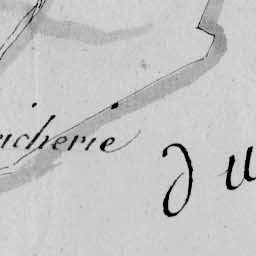 icherie
du